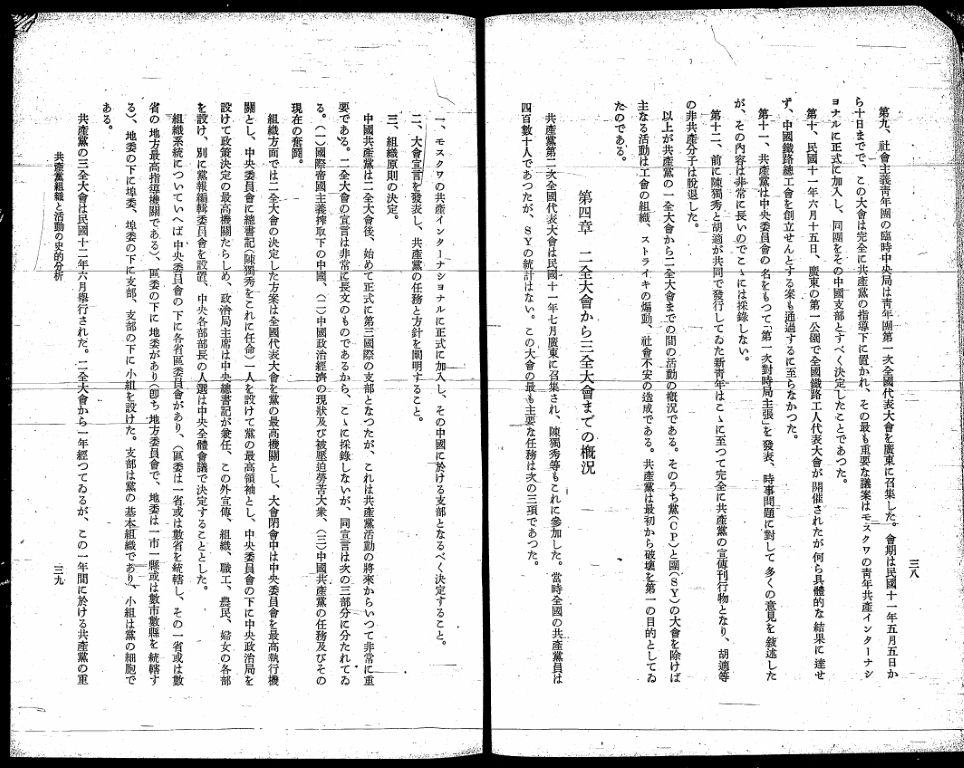 三八
第九、社會主義靑年團の臨時中央局は靑年團第一次全國代表大會を廣東に召集した。會期は民國十一年五月五日か
ら十日までで、この大會は完全に共產黨の指導下に置かれ、その最も重要な議案はモスクワの靑年共產インターナシ
ヨナルに正式に加入し、同團をその中國支部とすべく決定したことであつた。
第十、民國十一年六月十五日、廣東の第一公儀で全國鐵路工人代表大會が開催されたが何ら具體的な結果に達せ
ず、中國鐵路總工會を創立せんとする案も通過するに至らなかつた。
第十一、共產黨は中央委員會の名をもつて「第一次對時局主張」を發表、時事問題に對して多くの意見を敍述した
が、その內容は非常に長いのでこゝには採錄しない。
第十二、前に陳獨秀と胡適が共同で發行してゐた新靑年はこゝに至つて完全に共產黨の宣傳刊行物となり、胡適等
の非共產分子は脫退した。
以上が共產黨の一全大會から二全大會までの間の活動の槪況である。そのうち黨(CP)と團(SY)の大會を除けば
主なる活動は工會の組織、ストライキの煽動、社會不安の造成である。共產黨は最初から破壞を第一の目的としてゐ
たのである。
第四章　二全大會から三全大會までの槪況
共產黨第二次全國代表大會は民國十一年七月廣東に召集され、陳獨秀等もこれに參加した。當時全國の共產黨員は
四百數十人であつたが、SYの統計はない。この大會の最も主要な任務は次の三項であつた。
一、モスクワの共產インターナシヨナルに正式に加入し、その中國に於ける支部となるべく決定すること。
二、大會宣言を發表し、共產黨の任務と方針を闡明すること。
三、組織原則の決定。
中國共產黨は二全大會後、始めて正式に第三國際の支部となつたが、これは共產黨活動の將來からいつて非常に重
要である。二全大會の宣言は非常に長文のものであるから、こゝに採錄しないが、同宣言は次の三部分に分たれてゐ
る。(一)國際帝國主義搾取下の中國、(二)中國政治經濟の現狀及び被壓迫勞苦大衆、(三)中國共產黨の任務及びその
現在の奮鬪。
組織方面では二全大會の決定した方案は全國代表大會を黨の最高機關とし、大會閉會中は中央委員會を最高執行機
關とし、中央委員會に總書記(陳獨秀をこれに任命)一人を設けて黨の最高領袖とし、中央委員會の下に中央政治局を
設けて政策決定の最高機關たらしめ、政治局主席は中央總書記が兼任、この外宣傳、組織、職工、農民、婦女の各部
を設け、別に黨報編輯委員會を設置、中央各部部長の人選は中央全體會議で決定することとした。
組織系統についていへば中央委員會の下に各省區委員會があり、(區委は一省或は數省を統轄し、その一省或は數
省の地方最高指導機關である)、區委の下に地委があり(卽ち地方委員會で、地委は一市一縣或は數市數縣を統轄す
る)、地委の下に埠委、埠委の下に支部、支部の下に小組を設けた。支部は黨の基本組織であり、小組は黨の細胞で
ある。
共產黨の三全大會は民國十二年六月擧行された。二全大會から一年經つてゐるが、この一年間に於ける共產黨の重
共產黨組織と活動の史的分析
三九